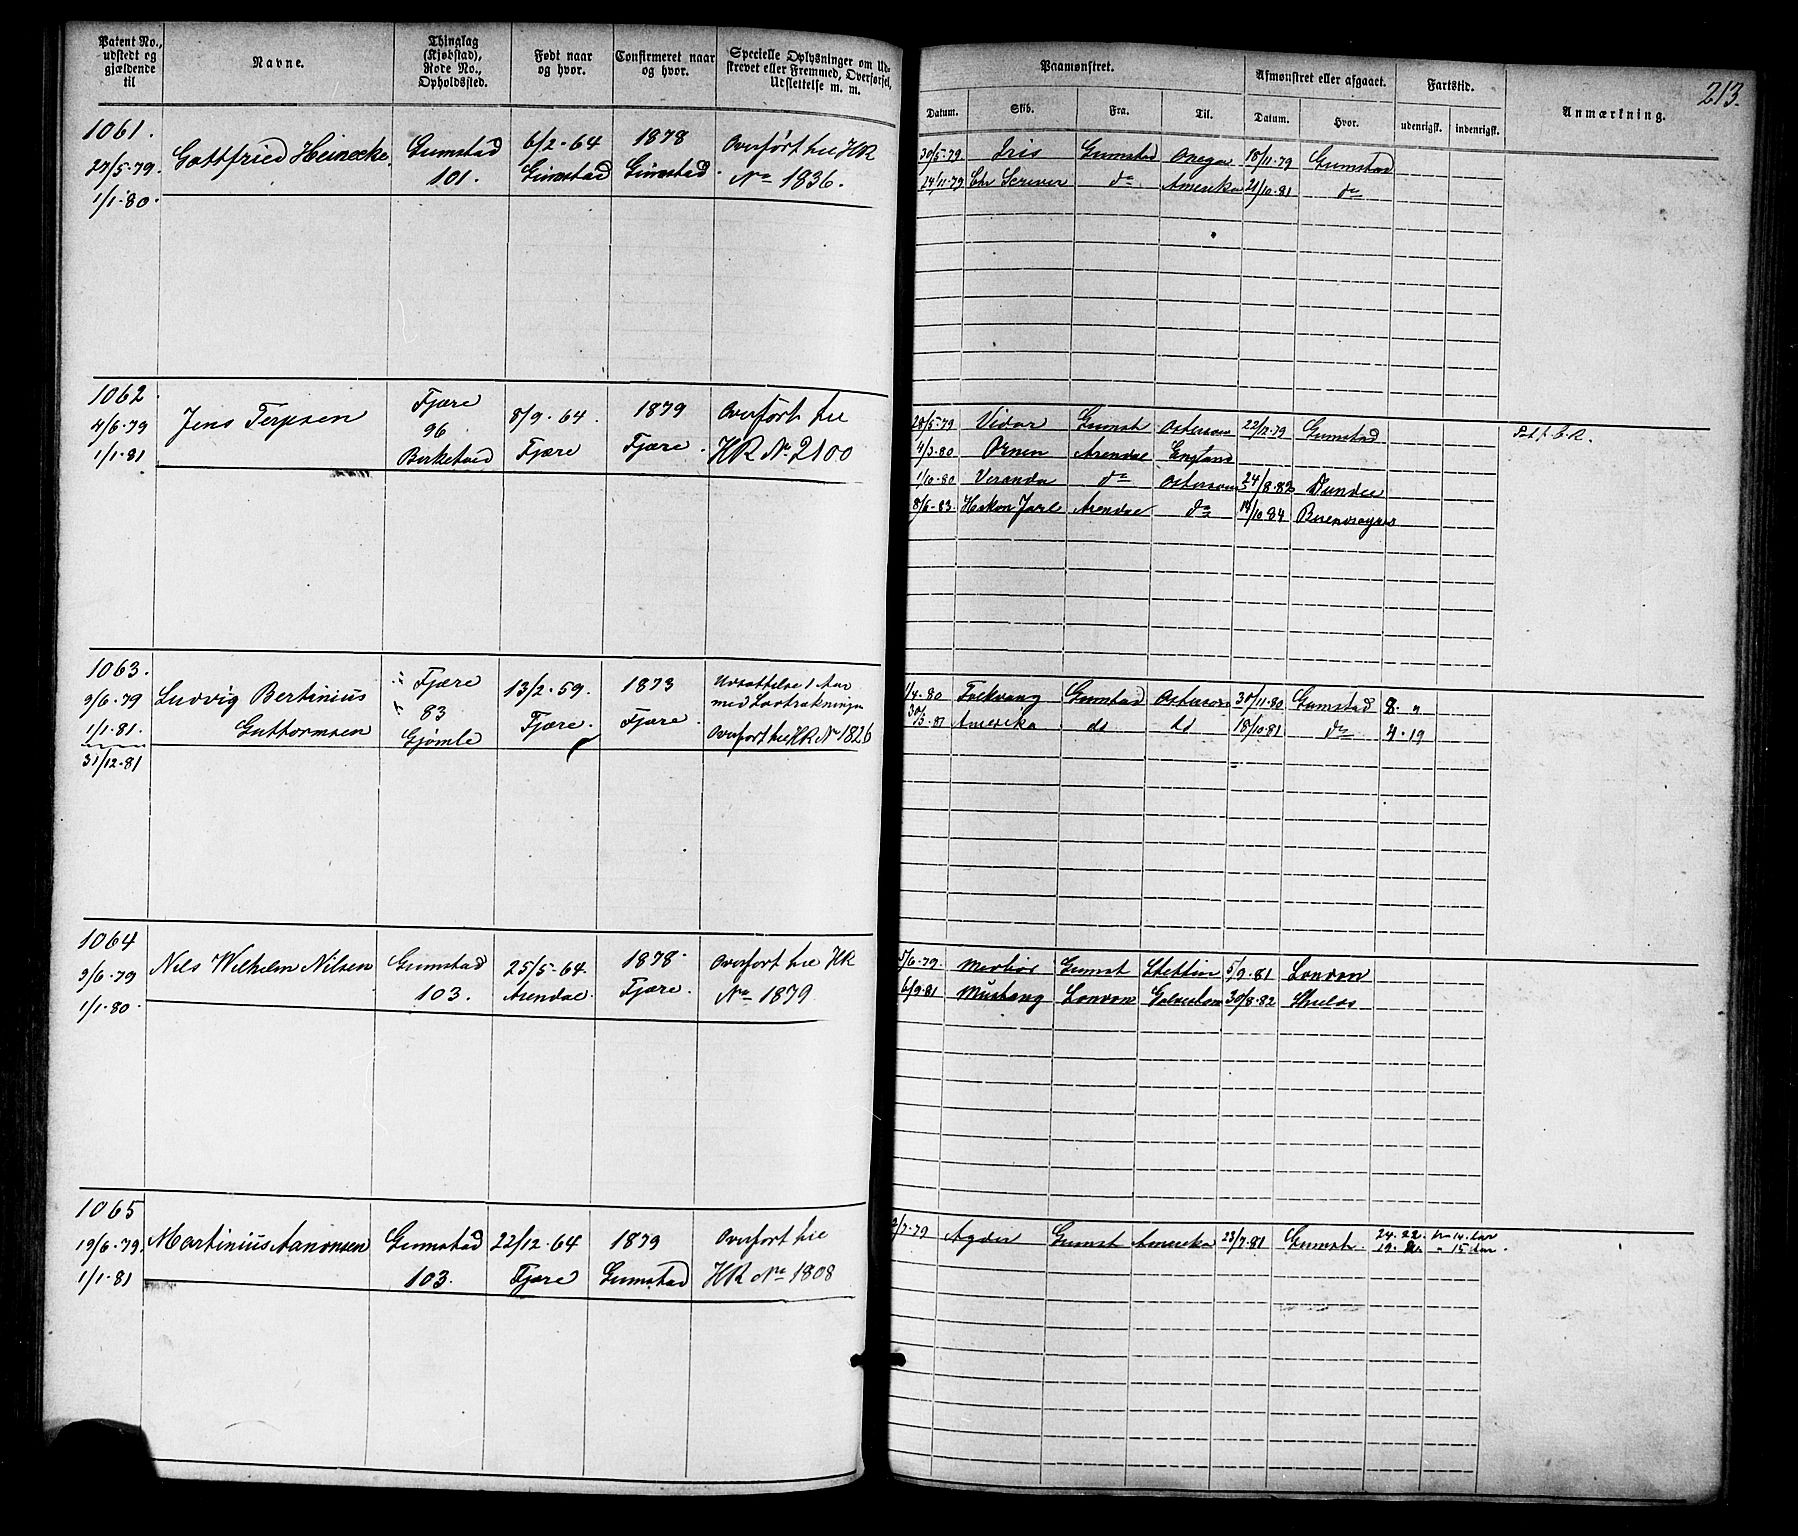 213.
Patent No., udstedt og gjældende til
Navne.
Thinglag (Kjøbstad), Rode No., Opholdssted.
Født naar og hvor.
Confirmeret naar og hvor.
Specielle Oplysninger om Udskrevet eller Fremmed, Overførsel, Udslettelse m. m.
Paamønstret.
Afmønstret eller afgaaet.
Fartstid.
Anmærkning.
Datum. Skib. Fra. Til. Datum. Hvor. udenrigsk. indenrigsk.
1061.
27/5-79. Gottfried Heinecke. Grimstad 6/2-64 1878 Overført til HR
101. Grimstad Grimstad. No 1836.
1/1-80.
30/5-79 Iris Grimstad Onega 18/11-79 Grimstad
24/11-79 Chr Scriver do Amerika 21/10-81 do
1062
4/6-79 Jens Terjesen Fjære 8/9-64. 1879 Overført til
96. Fjære Fjære. HR No 2100
1/1-81 Birketved
28/5-79 Vidar Grimst Østersøen 22/7-79 Grimstad
4/3-80 Ørnen Arendal England
1/10-80 Veranda do Østersøen 24/8-82 Dundee
8/6-83. Hakon Jarl Arendal do 14/10 84 Buenosayres
1063.
9/6-79 Ludvig Bertinius Fjære 13/2-59. 1873 Udsættelse 1 Aar
med Lodtrækningen
1/1-81. Guttormsen 83 Fjære. Fjære. Overført til HR No 1826
Gjømle
31/12-81
1/4-80 Folkvang Grimstad Østersøen 30/11-80 Grimstad 8 "
30/3-81 Amerika do do 18/10-81 do 4-19
1064
9/6-79 Nils Wilhelm Nilsen Grimstad 25/5-64. 1878 Overført til HR
103. Arendal. Fjære. No 1879
1/1-80
5/6-79. Grimst Stettin 5/9-81 London
6/9-81 Mustang London Galveston 30/8-82 Shields
1065
19/6-79. Martinius Aanonsen Grimstad 22/12-64 1879 Overført til
1/1-81 103. Fjære Grimstad HR No 1808
2/7-79 Agder Grimst Amerika 23/7-81 Grimst. 24-22